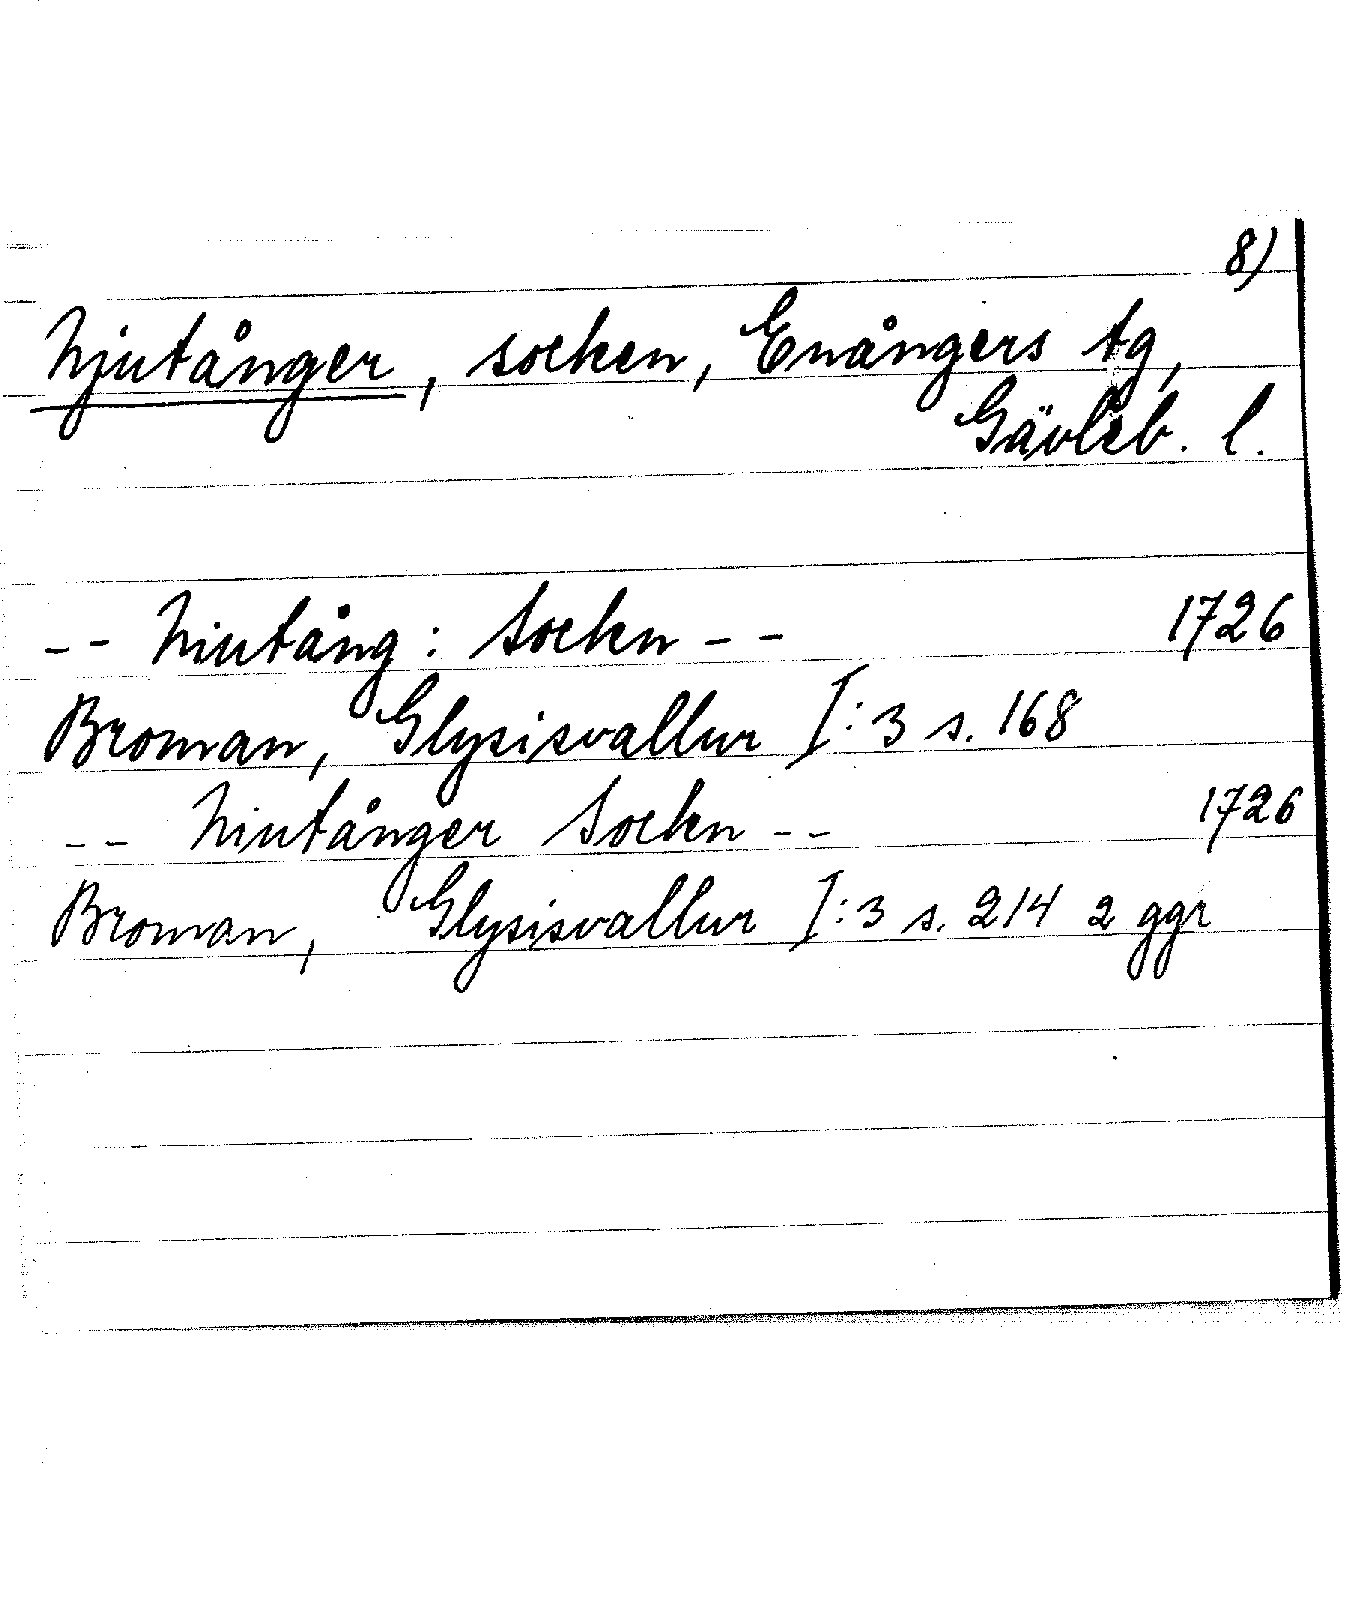 8)
Njutånger, socken, Enångers tg,
Gävleb. l.
-- Niutång: Sockn -- 1726
Broman, Glysisvallur I:3 s. 168
-- Niutånger Sockn -- 1726
Broman, Glysisvallur I:3 s. 214 2 ggr